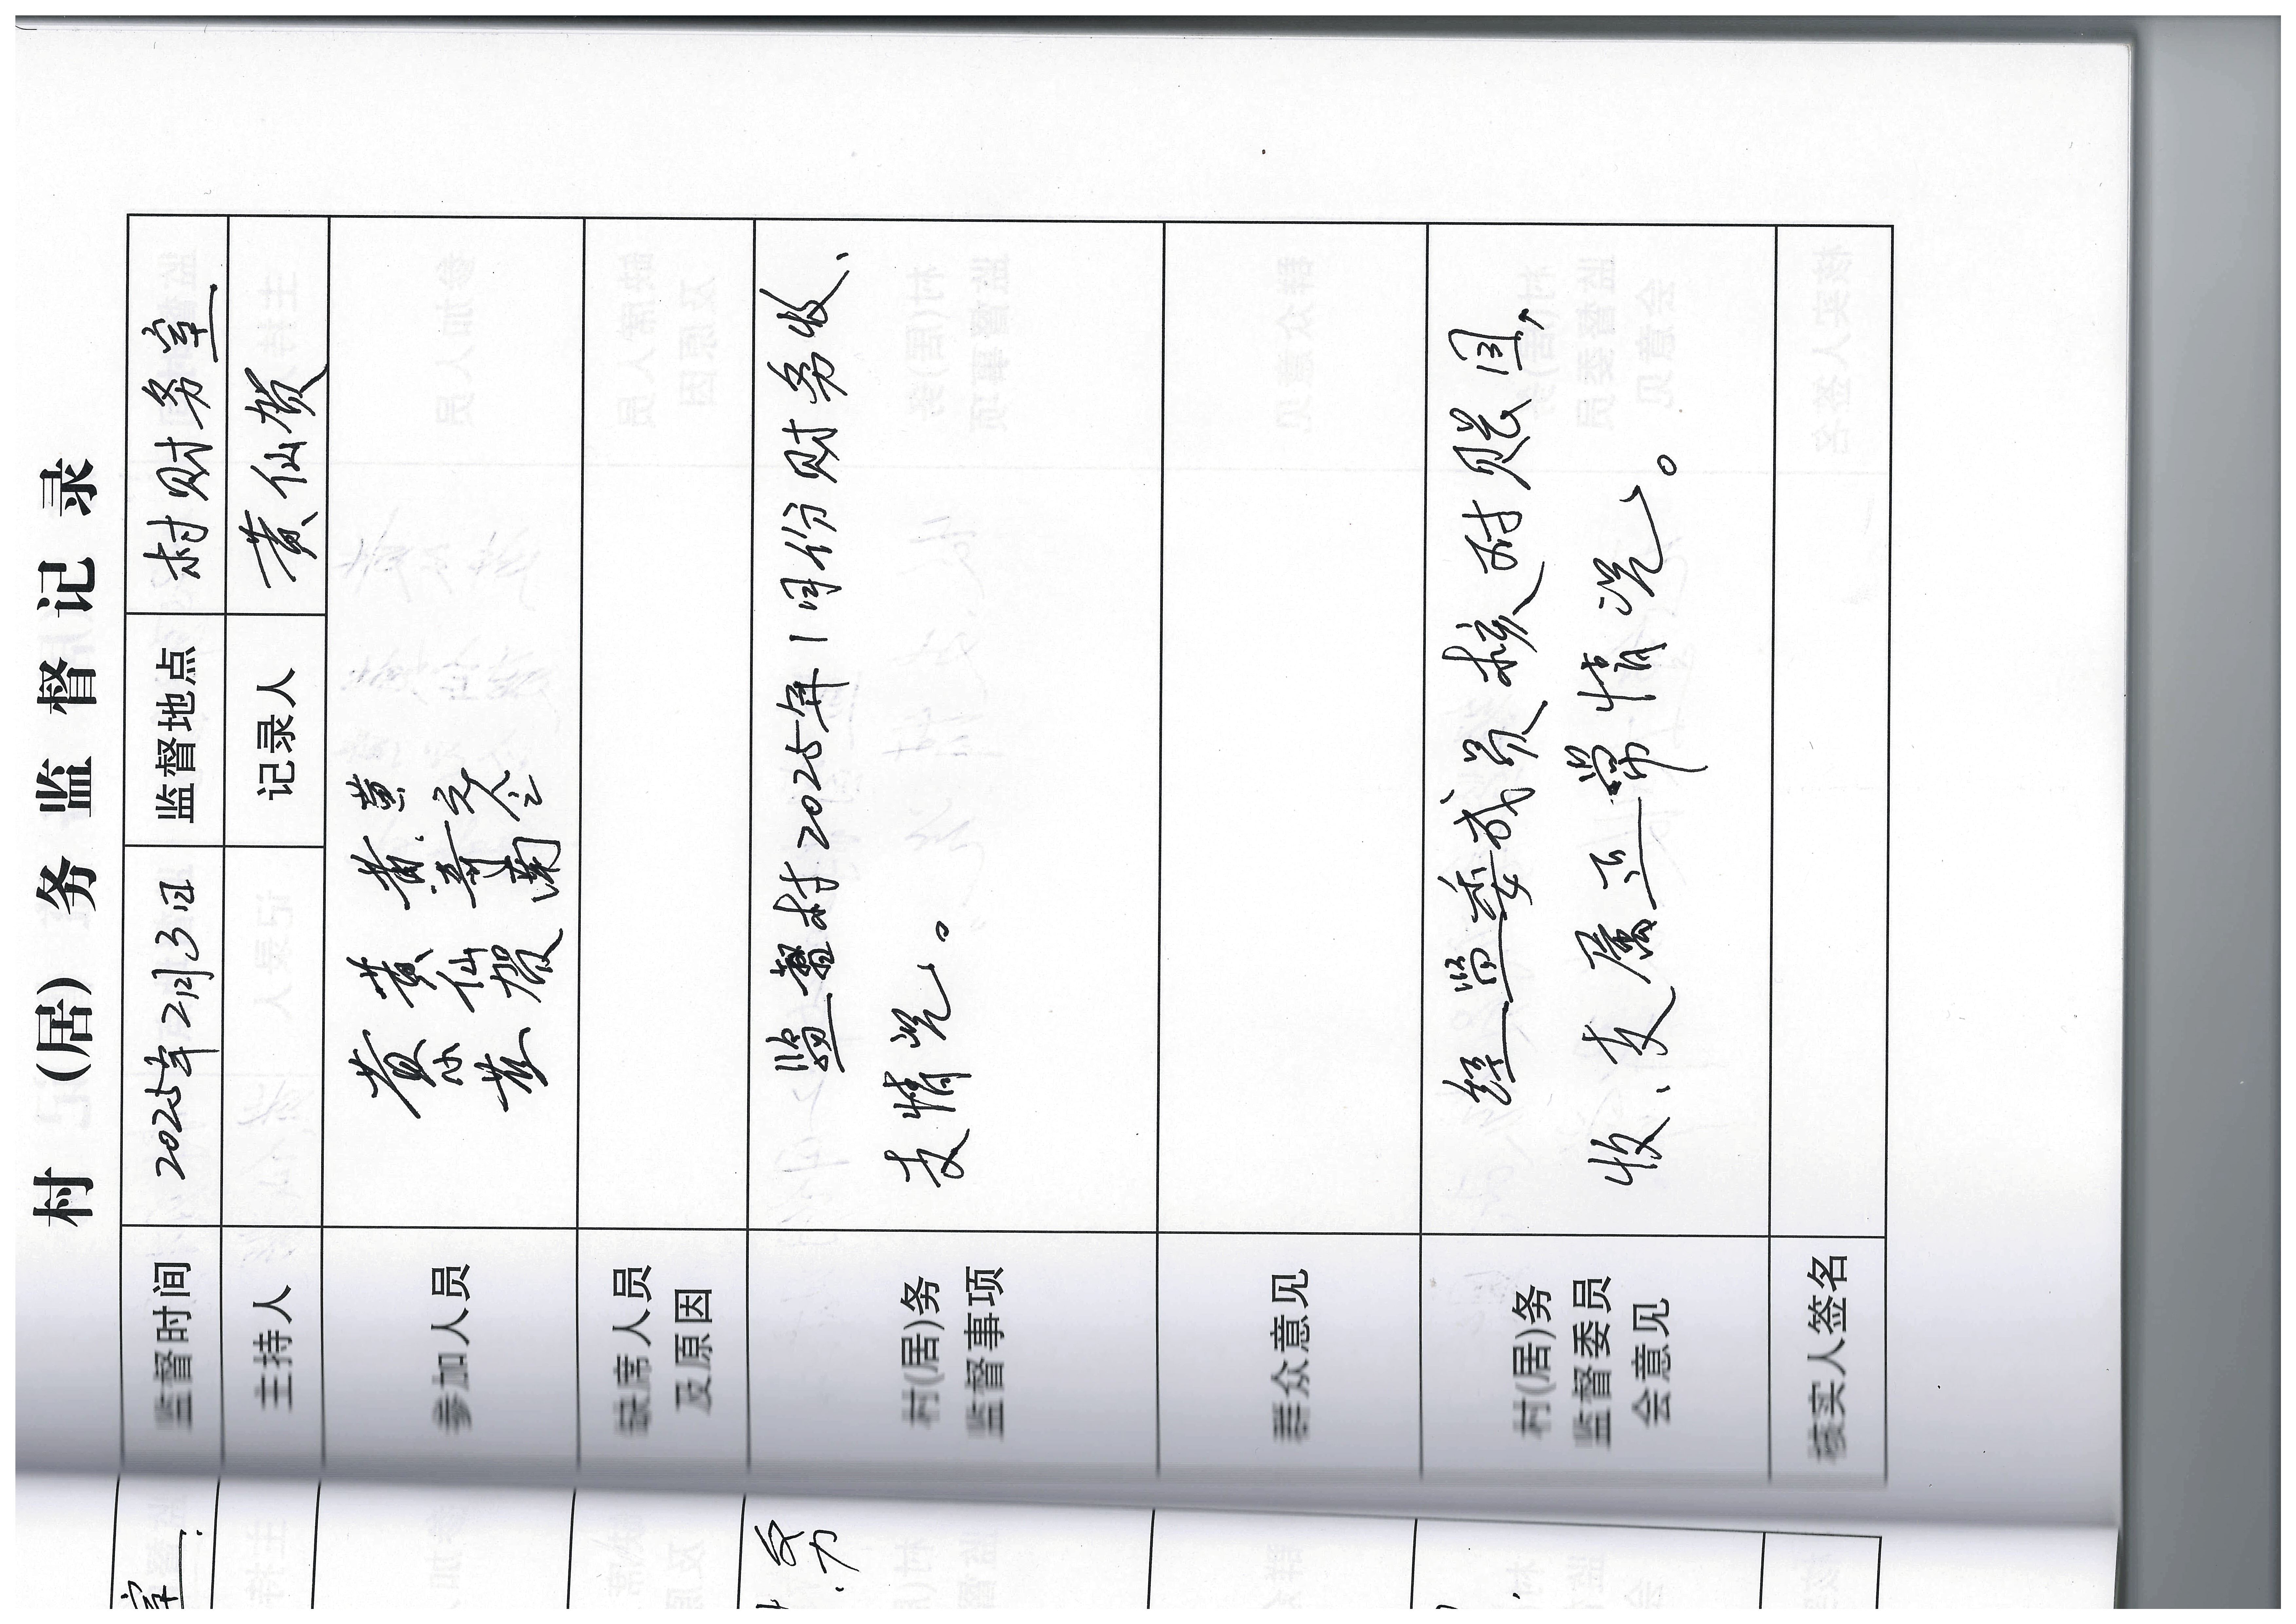 村(居)务监督记录
监督时间 2025年2月3日 监督地点 村财务室
主持人 记录人 黄仙贺
参加人员 黄 黄 黄 黄
仙
贺
缺席人员
及原因
村(居)务
监督事项
监督村2025年1月份财务收、
支情况。
群众意见
村(居)务
监督委员
会意见
经监委成员核对账目,
收、支属正常情况。
核实人签名
室
务